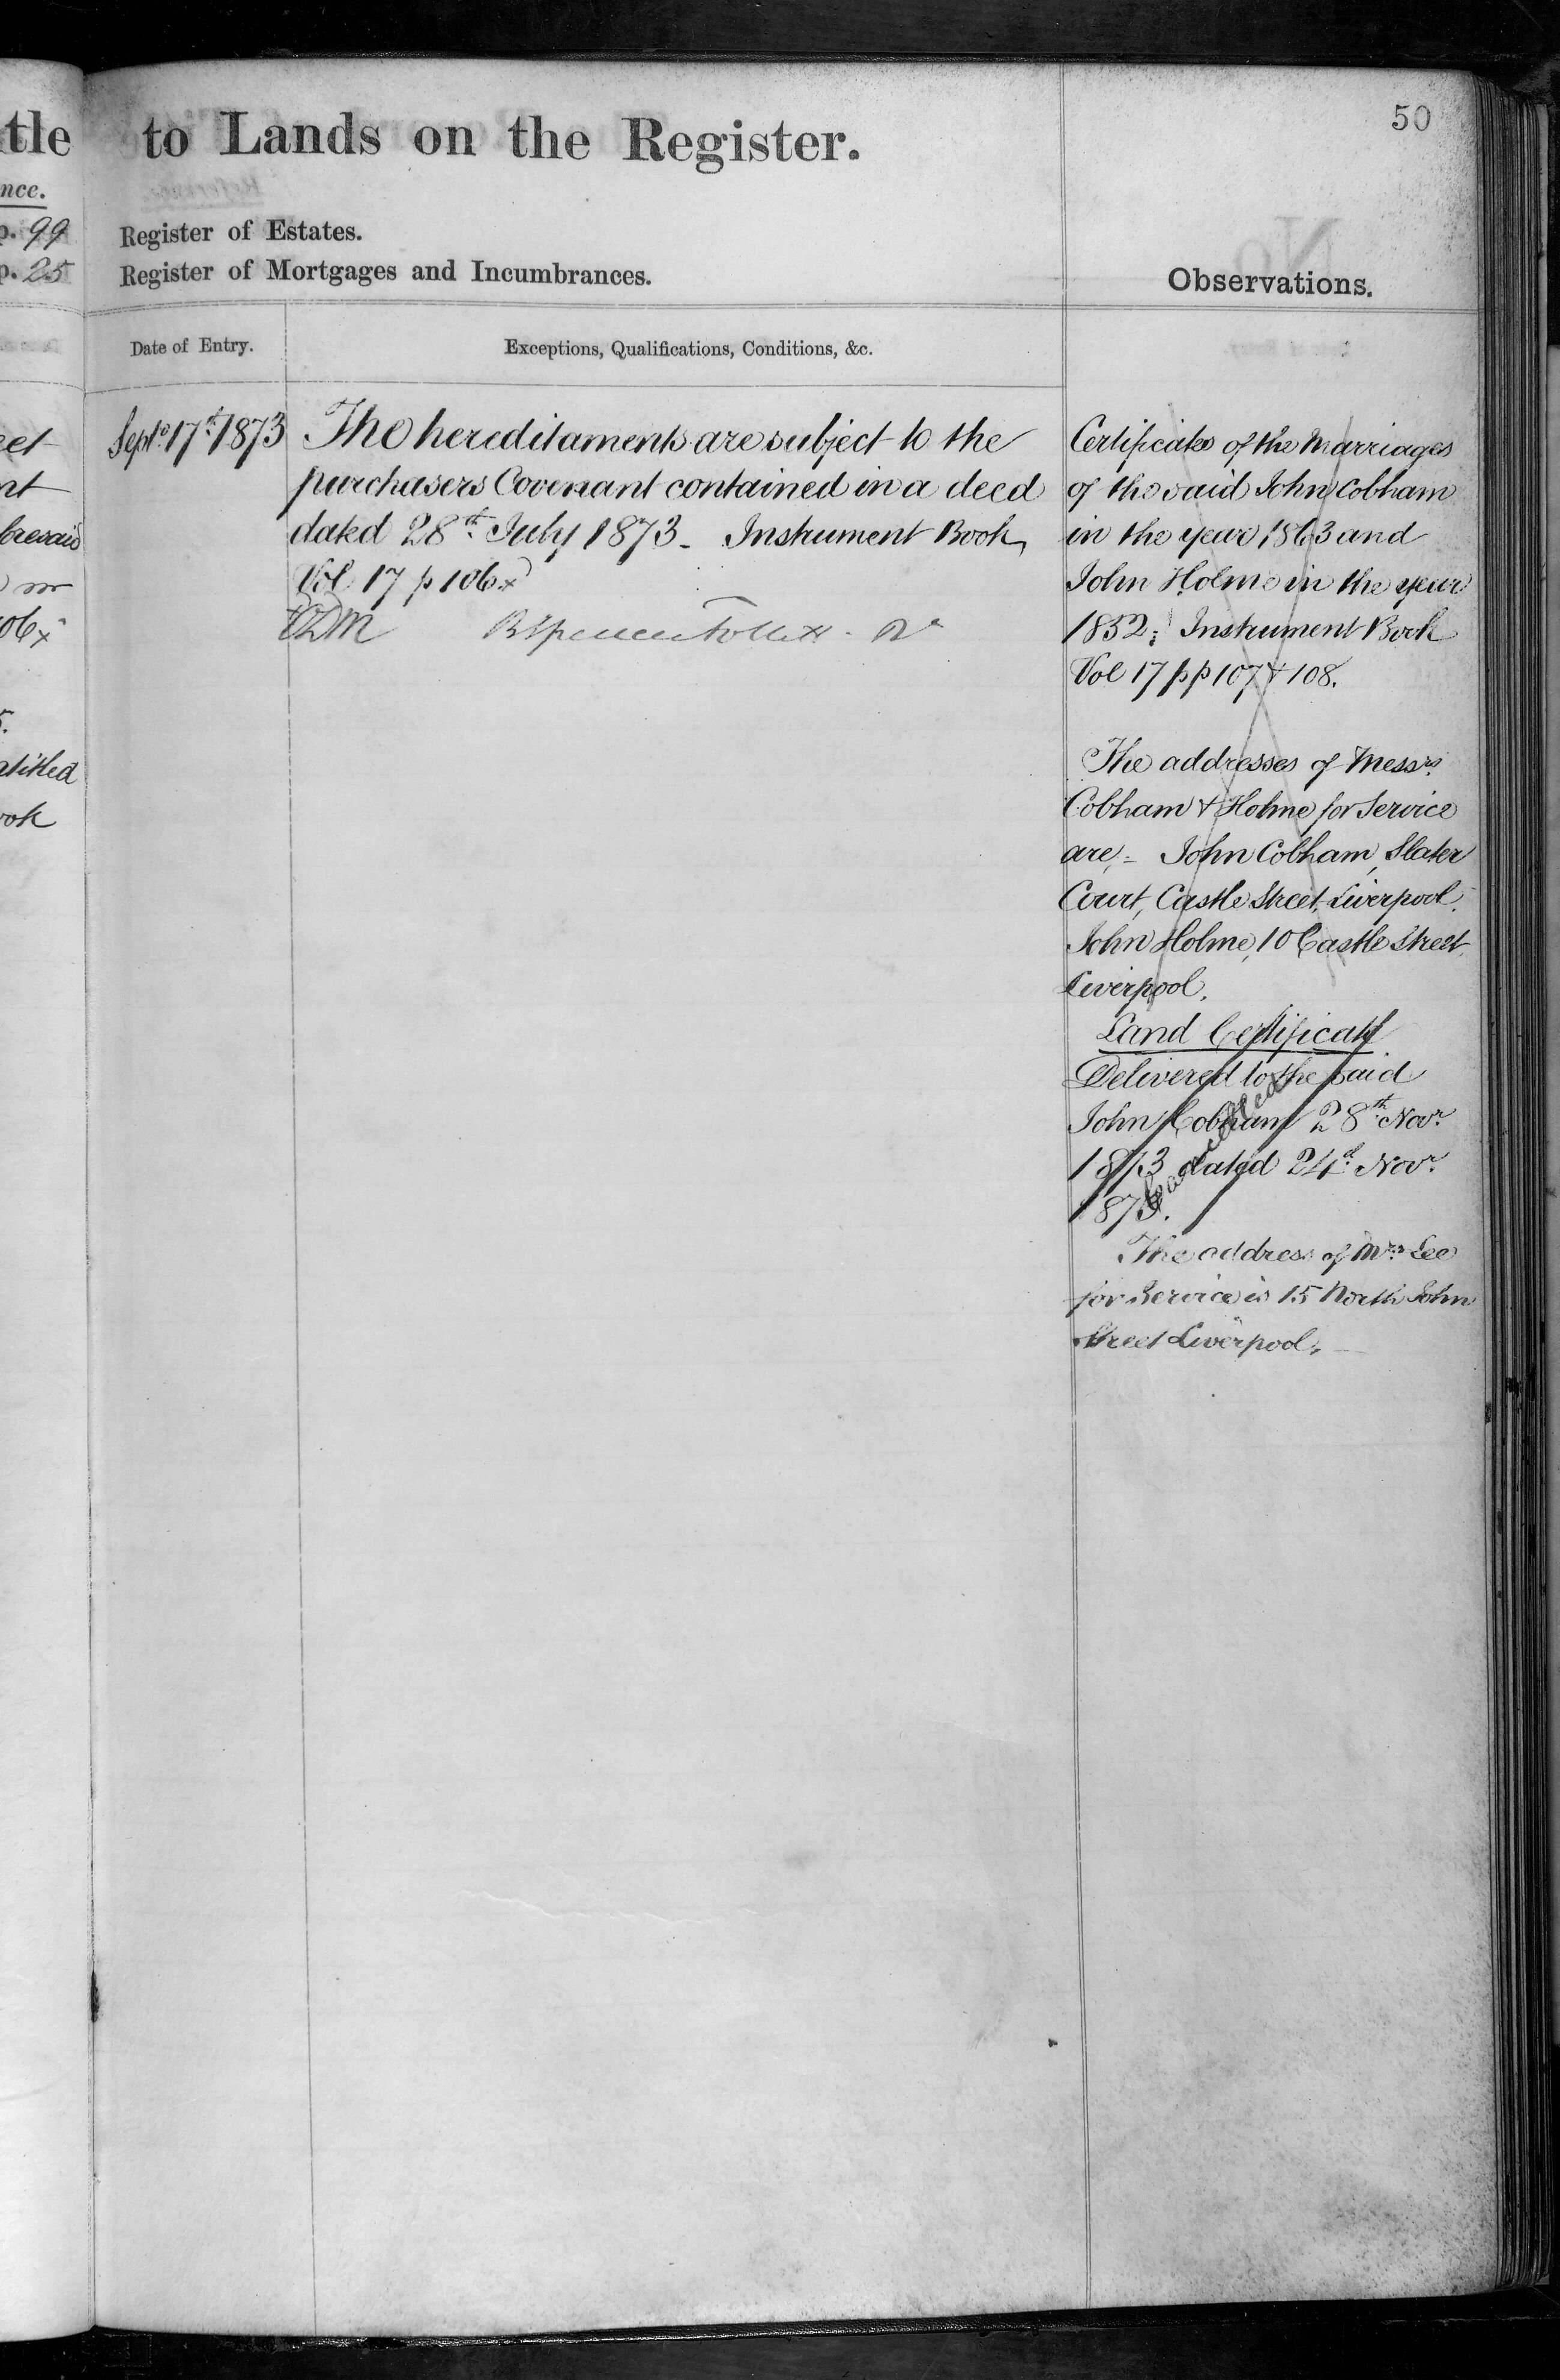 tle to Lands on the Register.
50
nce.
p. 99 Register of Estates.
p. 25 Register of Mortgages and Incumbrances.
Observations.
Date of Entry.
Exceptions, Qualifications, Conditions, &c.
Sept. 17th 1873
The hereditaments are subject to the
purchasers Covenant contained in a deed
dated 28th July 1873 - Instrument Book
Vol 17 p 106 x
Certificates of the Marriages
of the said John Cobham
in the year 1863 and
John Holme in the year
1852: Instrument Book
Vol 17 pp 107 & 108.
The addresses of Messrs
Cobham & Holme for Service
are, - John Cobham, Slater
Court, Castle Street, Liverpool.
John Holme, 10 Castle Street,
Liverpool.
Land Certificate
Delivered to the said
John Cobham 28th Novr
1873 dated 24th Novr
1873.
Cancelled
The address of Mrs Lee
for Service is 15 North John
Street Liverpool.